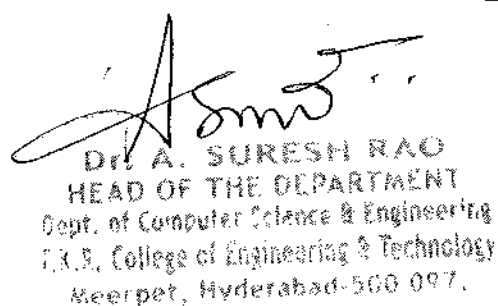 Dr. A. SURESH RAO
HEAD OF THE DEPARTMENT
Dept. of Computer Science & Engineering
T.K.R. College of Engineering & Technology
Meerpet, Hyderabad-500 097.